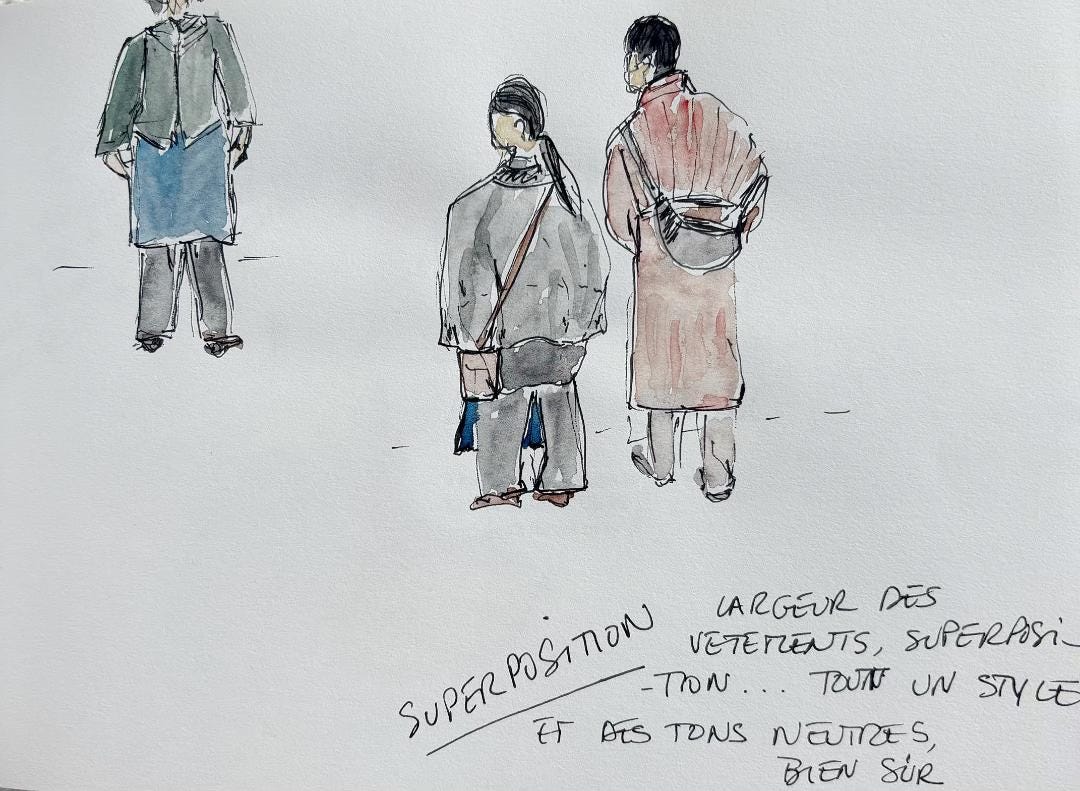 SUPERPOSITION
LARGEUR DES
VETEMENTS, SUPERPOSI-
-TION... TOUT UN STYLE
ET DES TONS NEUTRES,
BIEN SÛR